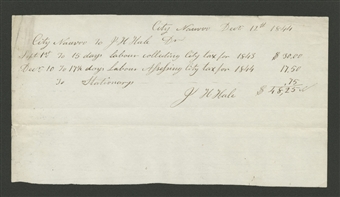 City Nauvoo Decr 12th 1844
City Nauvoo to J H Hale Dr
Sept 1st To 15 days labour collecting City tax for 1843 $ 30.00
Decr 10 To 17½ days labour Assessing City tax for 1844 17.50
To Stationary .75
J H Hale $ 48,25